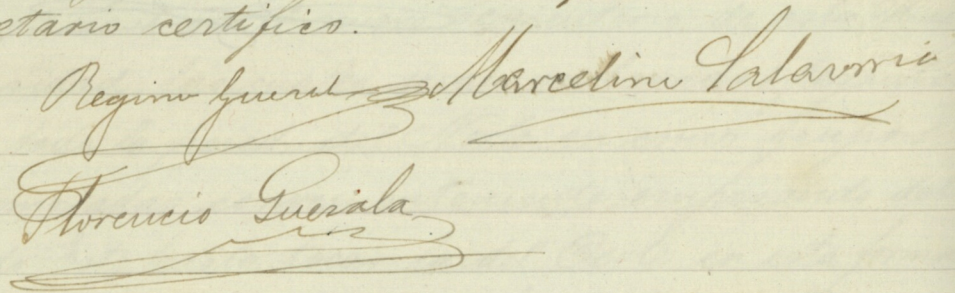 etario certifico.
Regino Gueral Marcelino Salavonia
Florencio Guerala